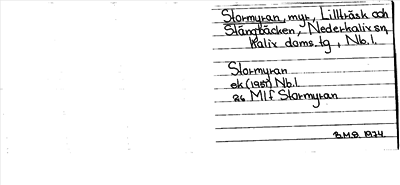 Stormyran, myr, Lillträsk och
Stångbäcken, Nederkalix sn,
Kalix doms.tg, Nb.l.
Stormyran
ek (1951) Nb.l.
26 Mlf Stormyran
B.M.Ö. 1974